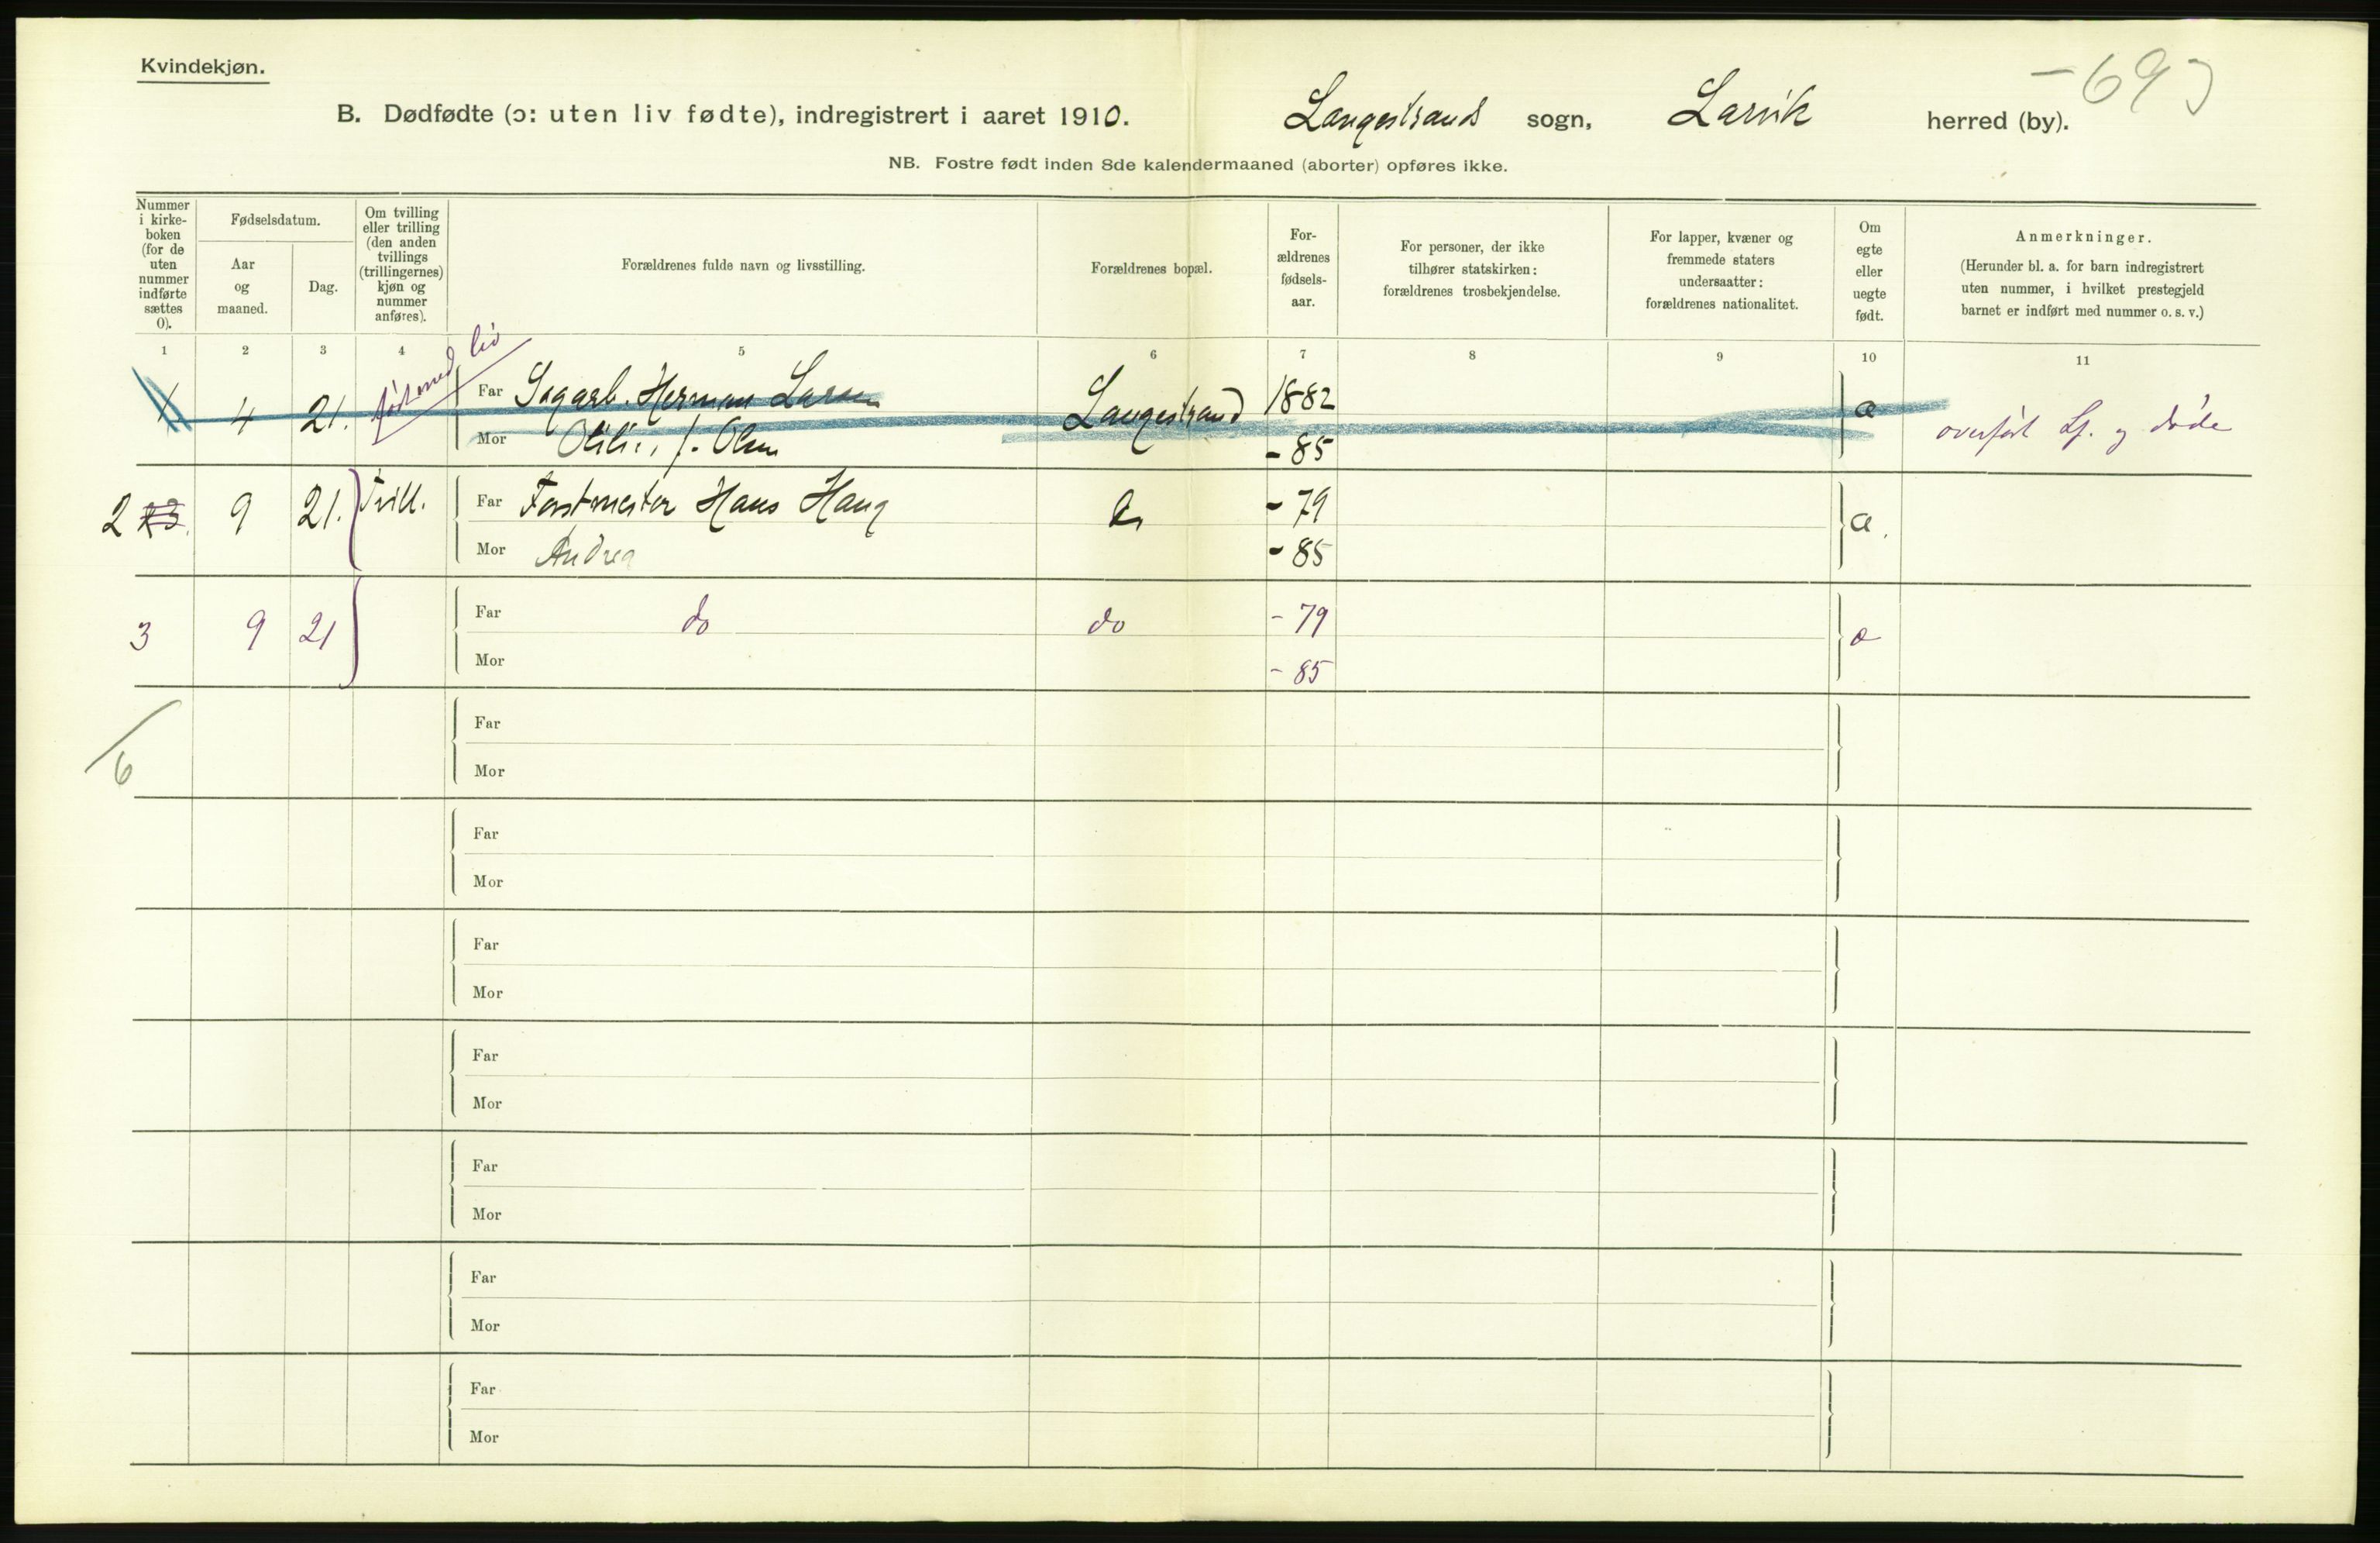 Kvindekjøn.
-693
B. Dødfødte (ɔ: uten liv fødte), indregistrert i aaret 1910. Langestrands sogn, Larvik herred (by).
NB. Fostre født inden 8de kalendermaaned (aborter) opføres ikke.
Nummer i kirke- boken (for de uten nummer indførte sættes 0).
Fødselsdatum.
Aar og maaned.
Dag.
Om tvilling eller trilling (den anden tvillings (trillingernes) kjøn og nummer anføres).
Forældrenes fulde navn og livsstilling.
Forældrenes bopæl.
For- ældrenes fødsels- aar.
For personer, der ikke tilhører statskirken: forældrenes trosbekjendelse.
For lapper, kvæner og fremmede staters undersaatter: forældrenes nationalitet.
Om egte eller uegte født.
Anmerkninger.
(Herunder bl. a. for barn indregistrert uten nummer, i hvilket prestegjeld barnet er indført med nummer o. s. v.)
1 2 3 4 5 6 7 8 9 10 11
1. 4 21. født med liv Far Sagarb. Herman Larsen Langestrand 1882 æ overført Lf. og døde
Mor f. Olsen - 85
2 9 21. Trill. Far Forstmester Hans Haug - 79 æ.
Mor Andrea - 85
3 9 21 Far do do - 79 æ
Mor - 85
Far
6
Mor
Far
Mor
Far
Mor
Far
Mor
Far
Mor
Far
Mor
Far
Mor